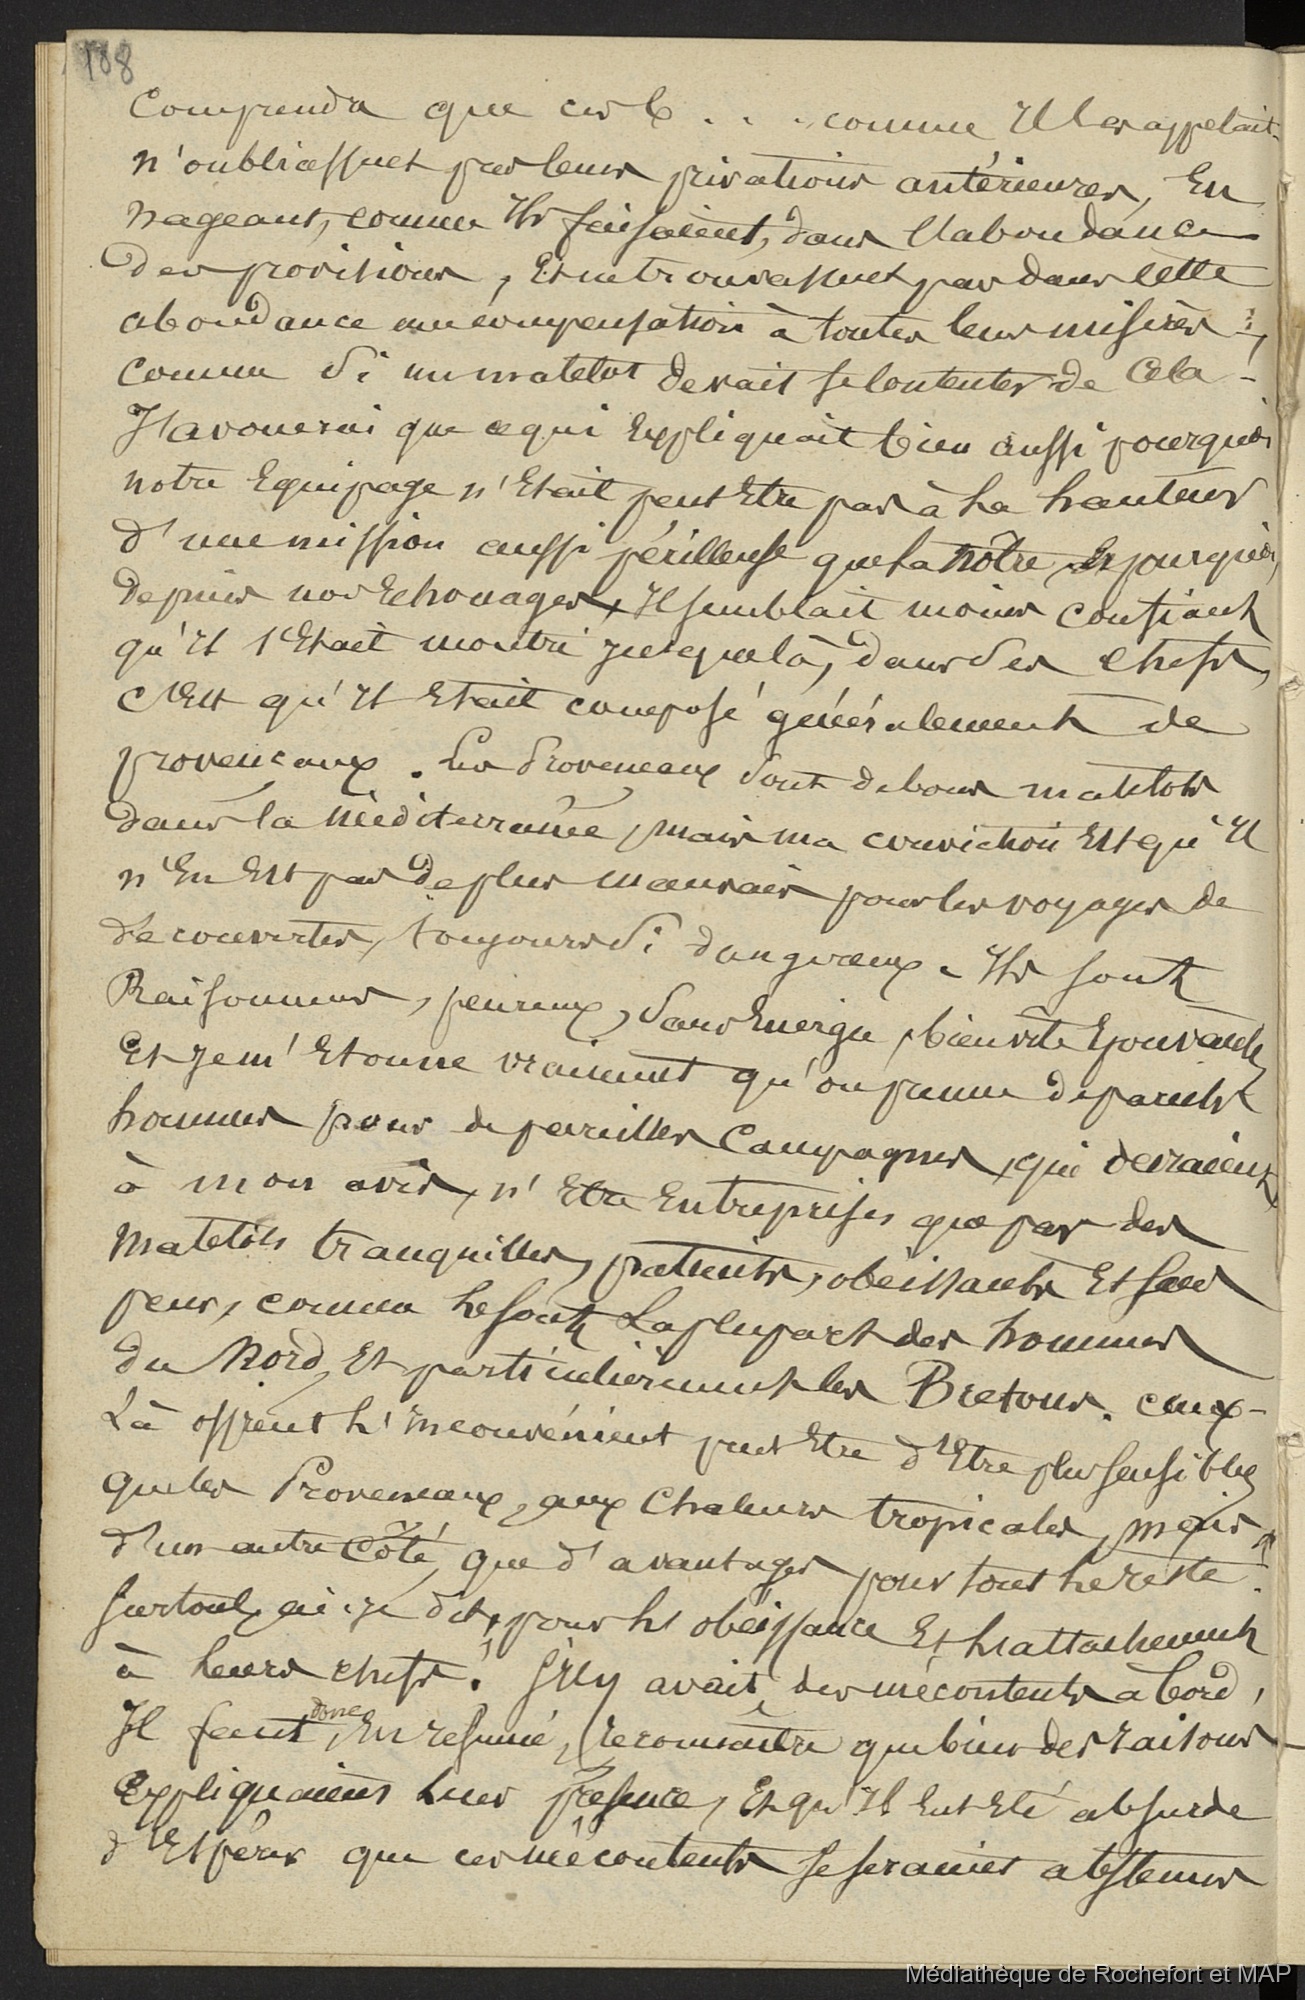 188
Comprendre que ces b . . . comme Il les appelait
n'oubliassent pas leurs privations antérieures, En
nageant, comme Ils faisaient, dans l'abondance
des provisions, Et ne trouvassent pas dans cette
abondance une compensation à toutes leurs misères !,
Comme Si un matelot devait se contenter de Cela -
J'avouerai que ce qui Expliquait bien aussi pourquoi
notre Equipage n'Etait peut Etre pas à la hauteur
d'une mission aussi périlleuse que la nôtre, Et pourquoi,
depuis nos Echouages, Il semblait moins confiant
qu'Il s'Etait montré jusque là, dans Ses chefs,
c'Est qu'Il Etait composé généralement de
provencaux. Les Provencaux Sont de bons matelots
dans la Méditerranée, mais ma conviction Est qu'Il
n'En Est pas de plus mauvais pour les voyages de
découvertes, toujours Si dangereux. Ils sont
Raisonneurs, peureux, Sans Energie, bien vite Epouvantés
Et Je m'Etonne vraiment qu'on prenne de pareils
hommes pour de pareilles Campagnes, qui devraient,
à mon avis, n'Etre Entreprises que par des
Matelots tranquilles, patients, obéissants Et sans
peur, comme le sont La plupart des hommes
du Nord, Et particulièrement les Bretons. ceux-
Là offrent l'Inconvénient peut Etre d'Etre plus sensibles
que les Provencaux, aux Chaleurs tropicales, mais
d'un autre Côté, que d'avantages pour tout le reste !
Surtout, ai-je dit, pour l'obéissance Et l'attachement
à leurs chefs ! S'Il y avait des mécontents à bord,
Il faut donc, En résumé, reconnaître que bien des raisons
Expliquaient leur présence, Et qu'Il Eut Eté absurde
d'Espérer que ces mécontents se seraient abstenus
Médiathèque de Rochefort et MAP